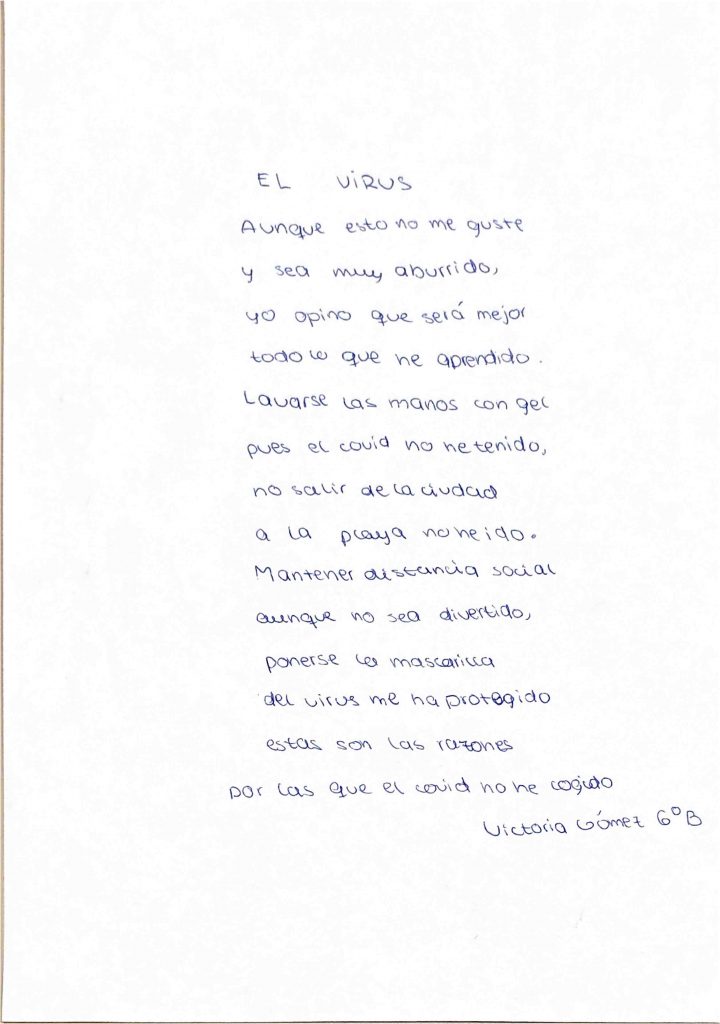 EL VIRUS
Aunque esto no me guste
y sea muy aburrido,
yo opino que será mejor
todo lo que he aprendido.
Lavarse las manos con gel
pues el covid no he tenido,
no salir de la ciudad
a la playa no he ido.
Mantener distancia social
aunque no sea divertido,
ponerse la mascarilla
del virus me ha protegido
estas son las razones
por las que el covid no he cogido
Victoria Gómez 6ºB